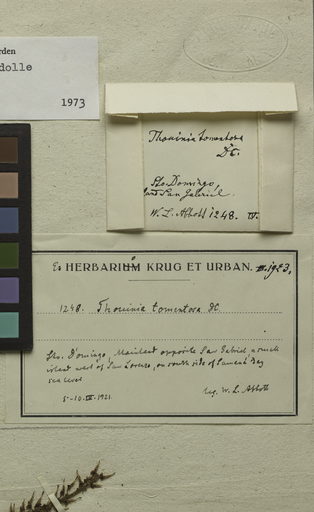 rden
dolle
1973
Thouinia tomentosa
DC.
Sto. Domingo,
San Gabriel.
W. L. Abbott 1248. IV.
Ex HERBARIUM KRUG ET URBAN. 1923.
1248. Thouinia tomentosa DC
Sto. Domingo, Mainland opposite San Gabriel, a small
island west of San Lorenzo, on south side of Samaná Bay
sea level
5-10.III.1921. leg. W. L. Abbott